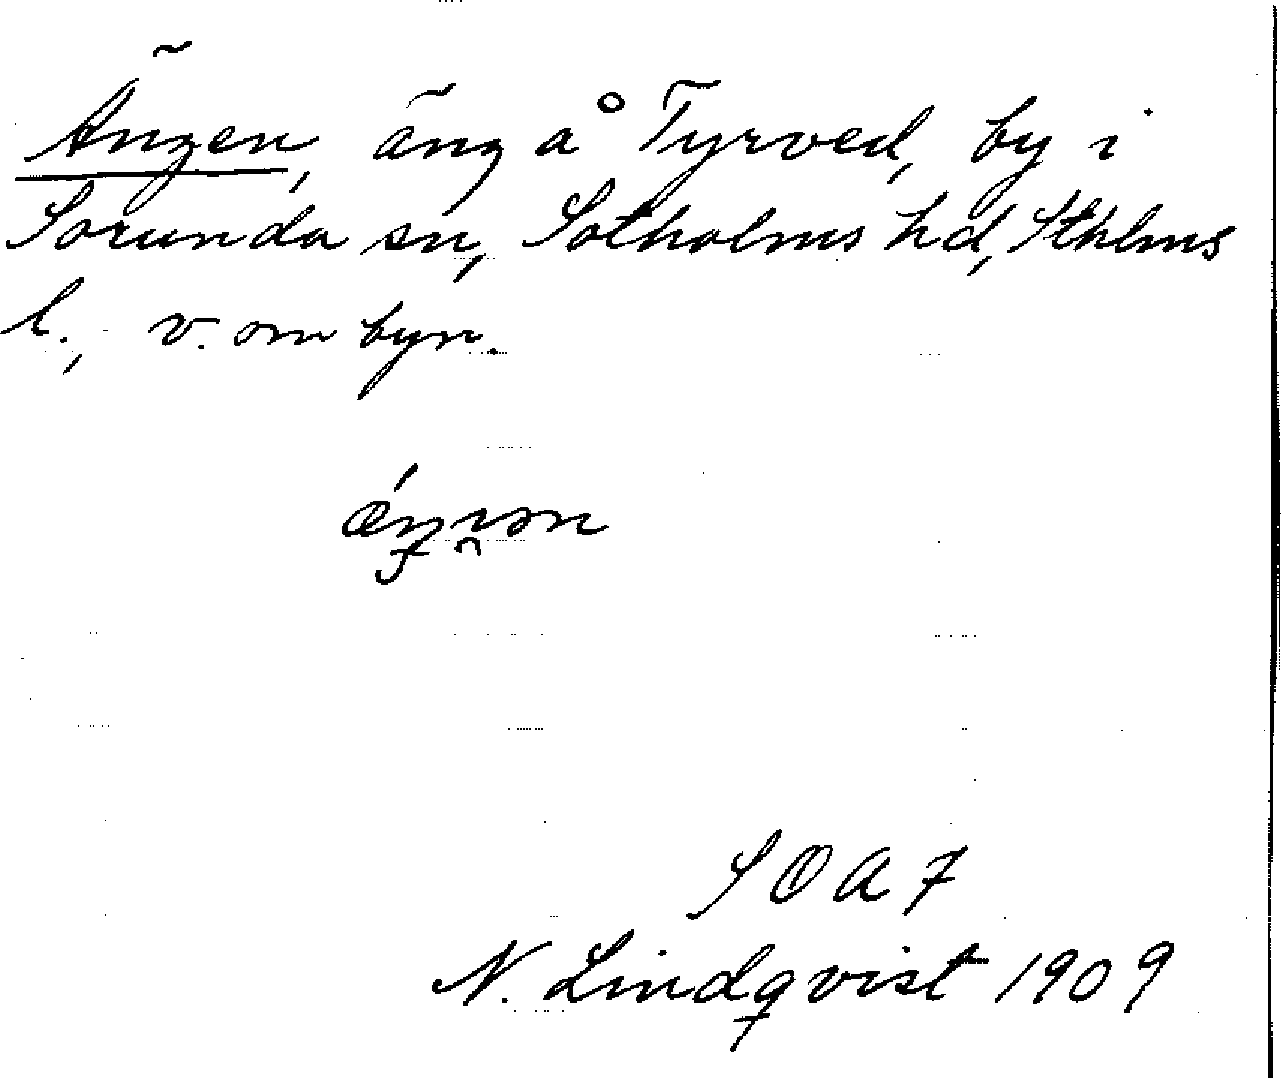 Ängen, äng å Tyrved, by i
Sorunda sn, Sotholms hd, Sthlms
l., v. om byn.
S O A 7
N. Lindqvist 1909